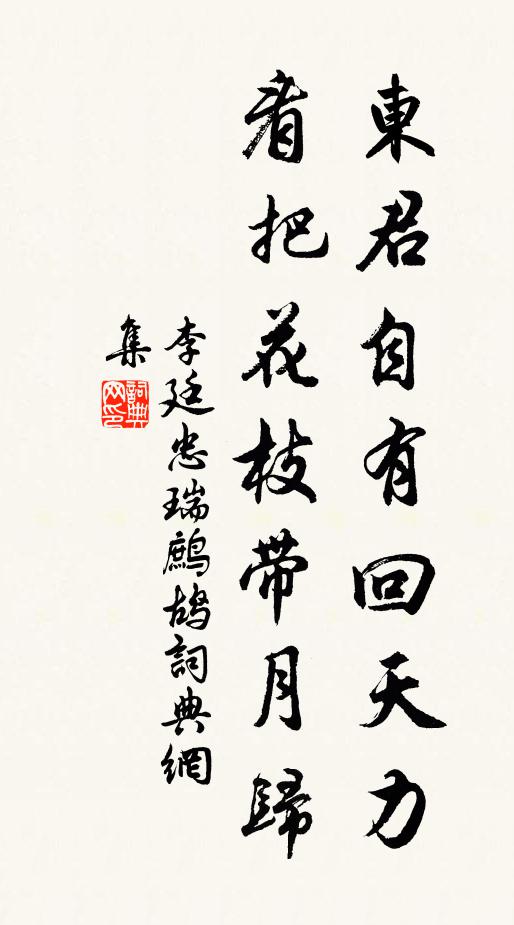 東君自有回天力
看把花枝帶月歸
李廷忠瑞鷓鴣詞典網
集
詞典
网印